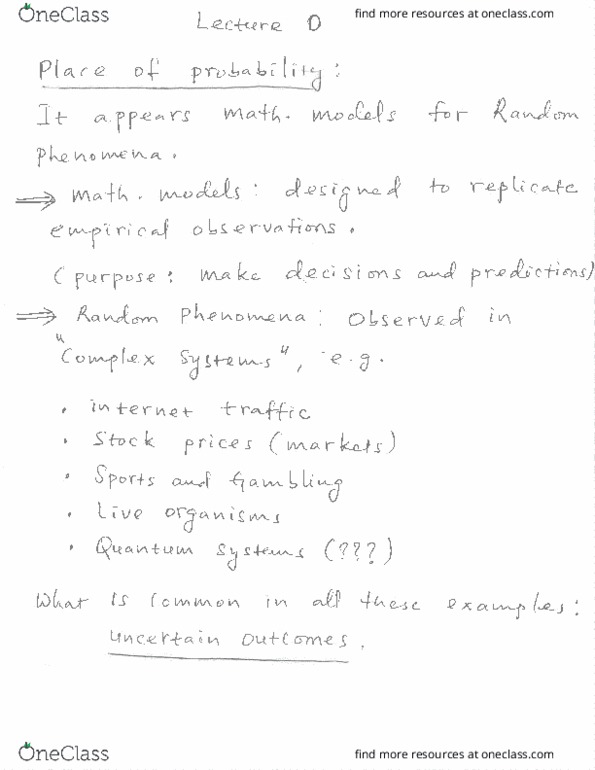 OneClass
find more resources at oneclass.com
Lecture 0
Place of probability:
It appears math. models for Random
phenomena.
⟹ math. models: designed to replicate
empirical observations.
(purpose: make decisions and predictions)
⟹ Random Phenomena: Observed in
"Complex Systems", e.g.
• internet traffic
• Stock prices (markets)
• Sports and Gambling
• Live organisms
• Quantum systems (???)
What is common in all these examples:
uncertain outcomes.
OneClass
find more resources at oneclass.com